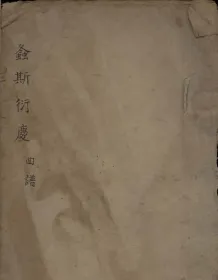 螽斯衍慶 曲譜